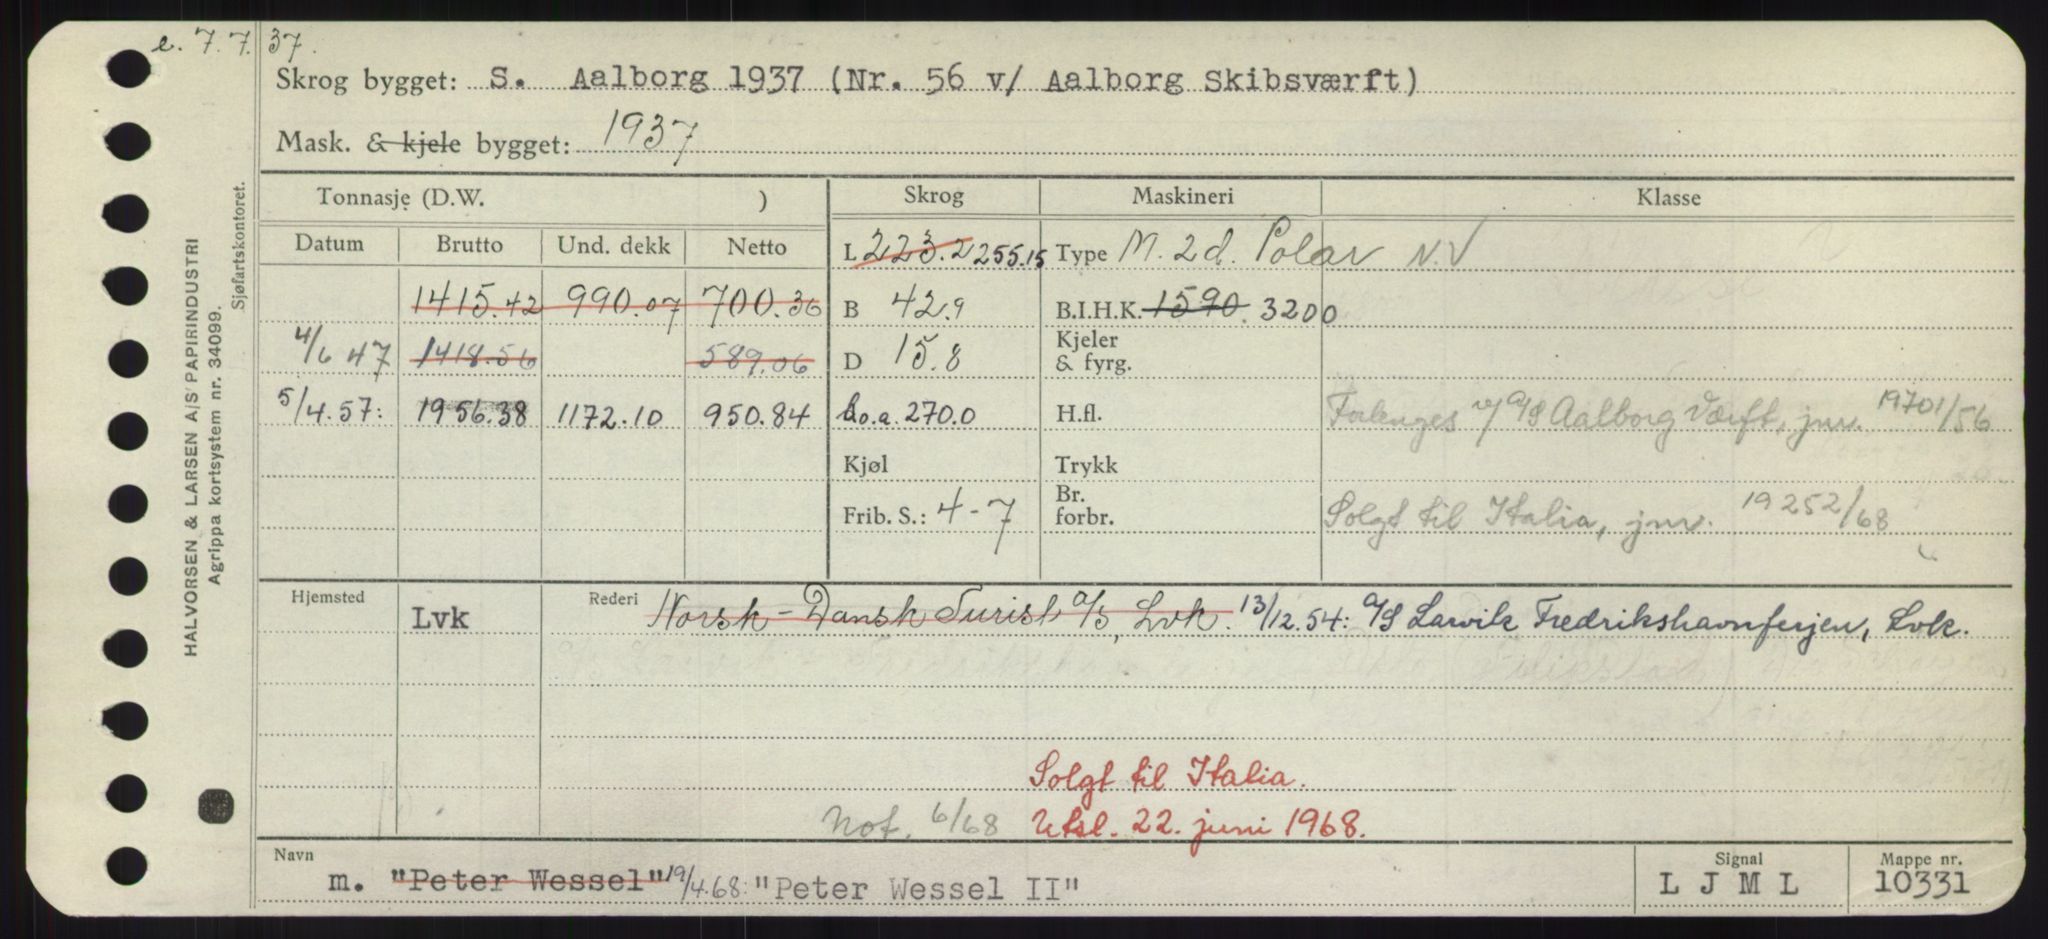 e. 7.7.37.
Skrog bygget: S. Aalborg 1937 (Nr. 56 v/ Aalborg Skibsværft)
Mask. & kjele bygget: 1937
Tonnasje (D.W. )
Skrog
Maskineri
Klasse
Datum Brutto Und. dekk Netto
L 223.2 255.15
Type M. 2 d. Polar N.V
1415.42 990.07 700.36
B 42.9
B.I.H.K. 1590. 3200
4/6 47 1418.56 589.06
D 15.8
Kjeler
& fyrg.
5/4.57: 1956.38 1172.10 950.84
Lo.a. 270.0
H.fl.
Forlenges v/ A/S Aalborg Værft, jnr. 19701/56
Kjøl
Trykk
Frib. S.: 4-7
Br.
forbr.
Solgt til Italia, jnr. 19252/68
Hjemsted Lvk
Rederi Norsk-Dansk Turist A/S, Lvk. 13/12.54: A/S Larvik Fredrikshavnferjen, Lvk.
Solgt til Italia.
Not. 6/68 Utsl. 22. juni 1968.
Navn
m. "Peter Wessel" 19/4.68: "Peter Wessel II"
Signal
L J M L
Mappe nr.
10331
HALVORSEN & LARSEN A/S PAPIRINDUSTRI
Agrippa kortsystem nr. 34099.
Sjøfartskontoret.